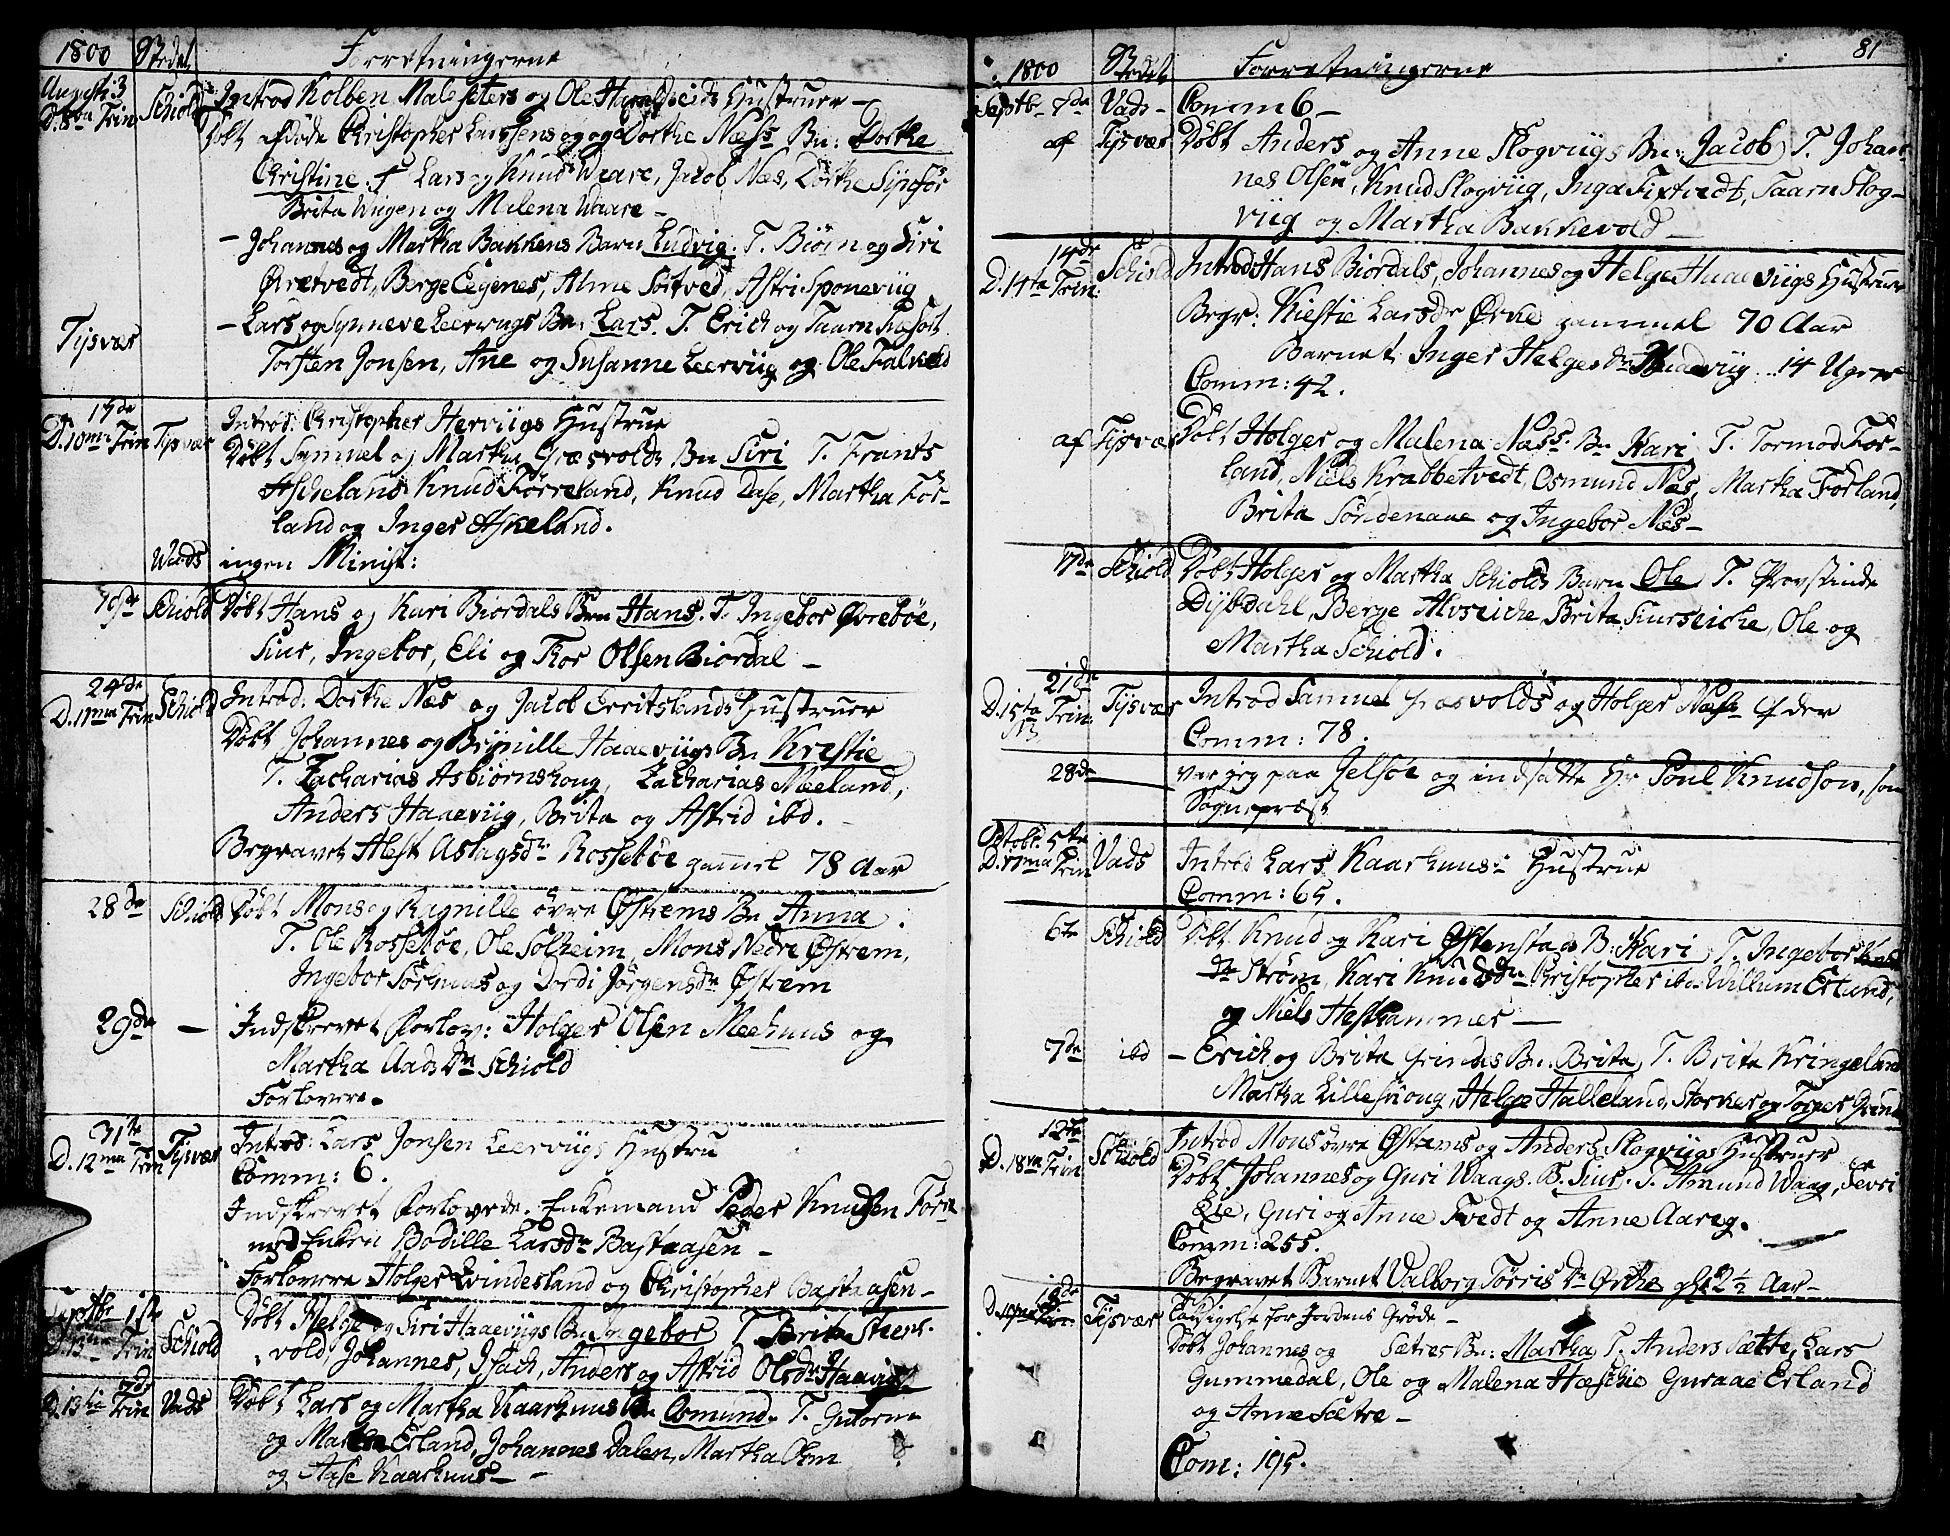 1800 Stedet Forretningerne
Augusti 3
D. 8va Trin Schiold Introd Kolben Maleseters og Ole Hustruer –
Døbt afdøde Christopher Larssens og Dorthe Næss Bn: Dorthe
Christine. T Lars og Knud Waare, Jacob Næs, Dorthe
Brita Wiigen og Malena Waare –
– Johannes og Martha Bakkens Barn Ludvig. T. Biörn og Siri
Øretvedt, Berge Eegenes, Alme Sörtved, Astri Sponeviig
Tysvær – Lars og Synneve Leervugs Bn: Lars. T. Erich og Taarn
Torsten Jonsen, Ane og Susanne Leerviig og Ole Falkeld
17de
D. 10ma Trin Tysvær Introd: Christopher Herviigs Hustrue
Døbt Sammel og Martha Græsvolds Bn Siri T. Frants
Ascheland Knud Førreland, Knud Dase, Martha För-
land og Inger Askeland.
Wads ingen Minist:
Schiold Døbt Hans og Kari Biordals Brn Hans. T. Ingebor Øvrebøe,
Siur, Ingebor, Eli og Thor Olsen Biordal –
24de
D. 11ma Trin Schiold Introd. Dorthe Næs og Jacob Erritslands Hustruer
Døbt Johannes og Brynille Haaeviigs Bn Krestie
T. Zacharias Asbiörnshoug, Zacharias Meeland,
Anders Haaeviig, Brita og Astrid ibd.
Begravet Alest Aslagsdr Rossebøe gammel 78 Aar
28de Schiold Døbt Mons og Ragnille övre Østrems Bn Anna.
T. Ole Rossebøe, Ole Solheim, Mons Nedre Østrem,
Ingebor Sörenæs og Dordi Jörgensdr Østrem
29de – Indskrevet Forlov: Holger Olsen Meehuus og
Martha Aads Dr Schiold
Forlovere –
31te
D. 12ma Trin Tysvær Introd: Lars Jonsen Leerviigs Hustru
Comm: 6.
Indskrevet Forlovede. Enkemand Peder Knudsen Förre
med Enken Bodille Larsdr Bastaasen –
Forlovere Holger Qvindesland og Christopher Bastaasen –
Septbr 1ste Schiold Døbt Helge og Siri Haaeviigs Bn Ingebor T. Brita Steens-
vold, Johannes, Isach, Anders og Astrid Olsdr Haaviig.
7de
D. 13tia Trin Vads Døbt Lars og Martha Kaarhuus Bn Osmund. T. Gutorm
og Martha Erland, Johannes Dalen, Martha Olsen
og Aase Kaarhuus –
1800 Stedet Forretningerne 81
Septbr 7de Vads – Comm 6 –
af Tysvær Døbt Anders og Anne Slogviigs Bn: Jacob, T. Johan-
nes Olsen, Knud Slogviig, Inga Tixtvedt, Taarn Slog-
viig og Martha Bakkevold –
14de
D. 14ta Trin: Schiold Introd Hans Biordals, Johannes og Helge Haaeviigs Hustruer
Begr: Kiestie Larsdr Ørke gammel 70 Aar
Barnet Inger Helges Dr Haaeviig 14 Uger
Comm: 42.
af Tysvær Døbt Holger og Malena Næss Bn Kari, T. Tormod För-
land, Niels Krabbetvedt, Osmund Næs, Martha Forland,
Brita Söndenaae og Ingebor Næs –
17de Schiold Døbt Holger og Martha Schiolds Barn Ole T. Provstinde
Dybdahl, Berge Alvseiche, Brita Siurseiche, Ole og
Martha Schiold.
21de
D. 15ta Trin: Tysvær Introd Sammel Græsvolds og Holger Næss
Comm: 78.
28de var jeg paa Jelsöe og indsatte Hr Poul Knudson, som
Sognepræst
Octobr. 5te
D. 17ma Trin Vads Introd Lars Kaarhuus Hustrue
Comm: 65.
6te Schiold Døbt Knud og Kari Østenstads B: Kari, T. Ingebor Knuds
Dr Ström, Kari Knudsdr Christopher ibd Willum Erland,
og Niels Hesthammer –
7de ibd – Erich og Brita Grindes Bn: Brita, T. Brita Kringeland
Martha Lillesskoug, Helge Halleland, Storker og Torger Grinde
12te
D. 18va Trin Schiold Introd Mons övre Østrems og Anders Slogviigs Hustruer
Døbt Johannes og Guri Waags B. Siur. T. Amund Waag, Sevri
Eie, Guri og Anne Tvedt og Anne Aareg.
Comm: 255.
Begravet Barnet Valborg Törris Dr Ørke 2½ Aar –
Tysvær Taksigelse for Jordens Grøde –
Døbt Johannes og Sætres Bn: Martha T. Anders Sætre, Lars
Gummedal, Ole og Malena Hæschie Guraae Erland
og Anne Sætre –
Com: 195.